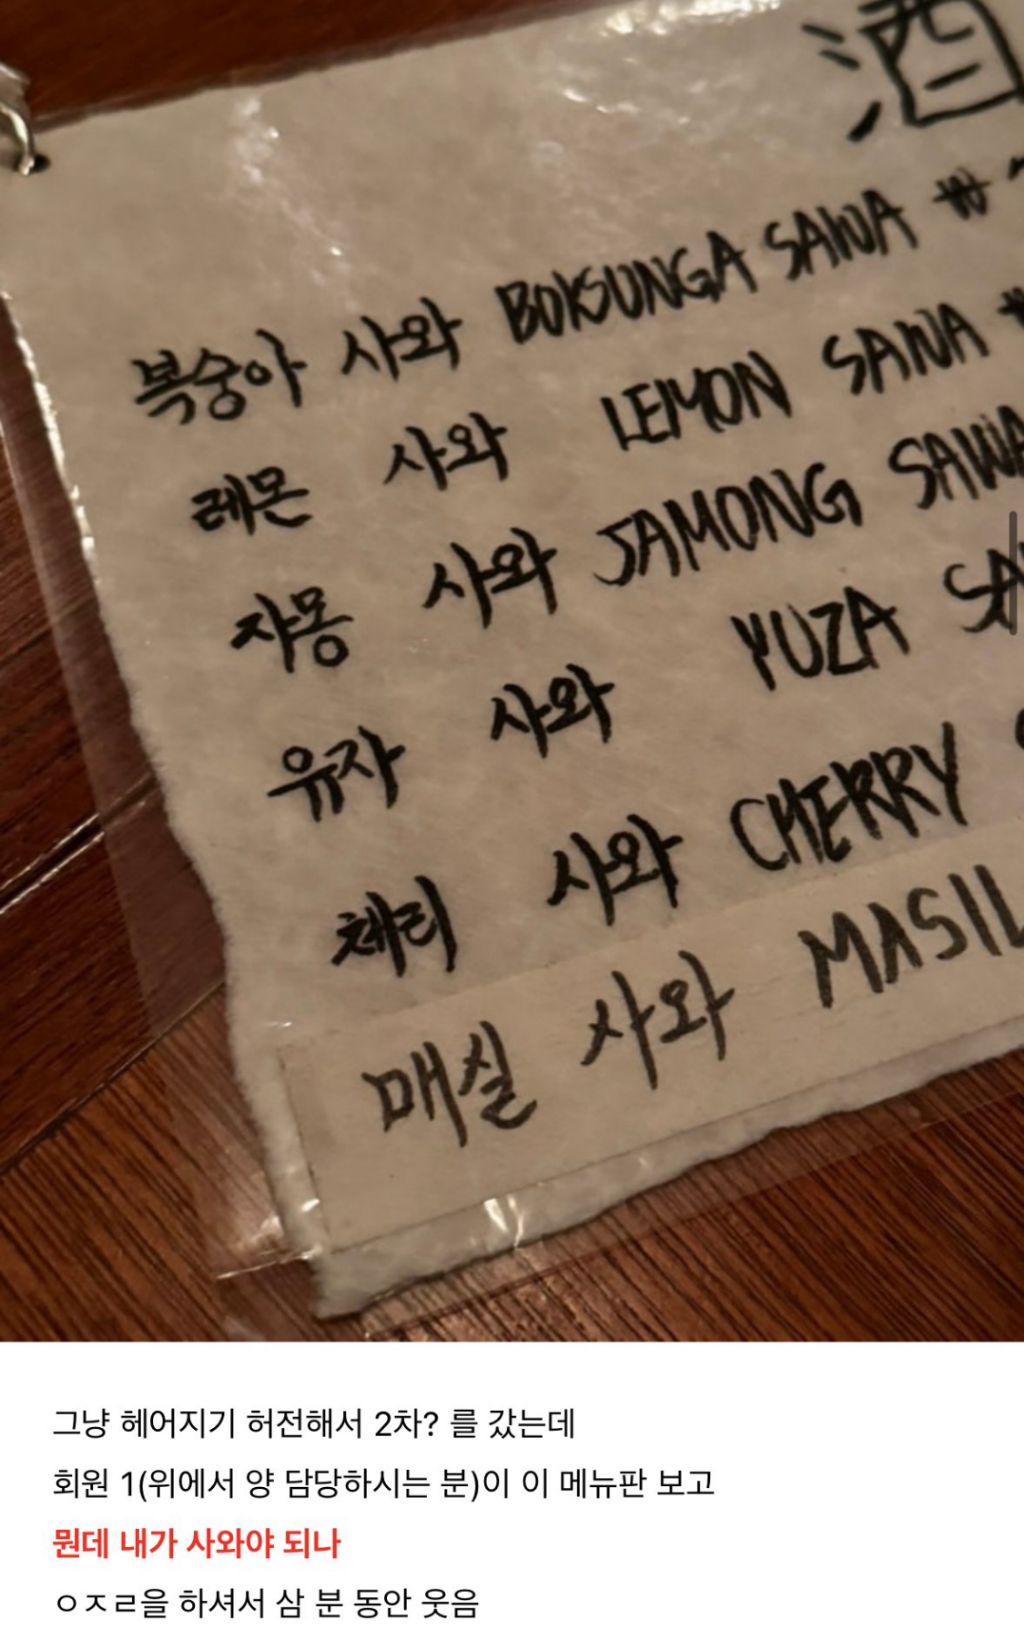 酒
복숭아 사와 BOKSUNGA SAWA ₩
레몬 사와 LEMON SAWA
자몽 사와 JAMONG SAWA
유자 사와 YUZA SA
체리 사와 CHERRY
매실 사와 MASIL
그냥 헤어지기 허전해서 2차? 를 갔는데
회원 1(위에서 양 담당하시는 분)이 이 메뉴판 보고
뭔데 내가 사와야 되나
ㅇㅈㄹ을 하셔서 삼 분 동안 웃음